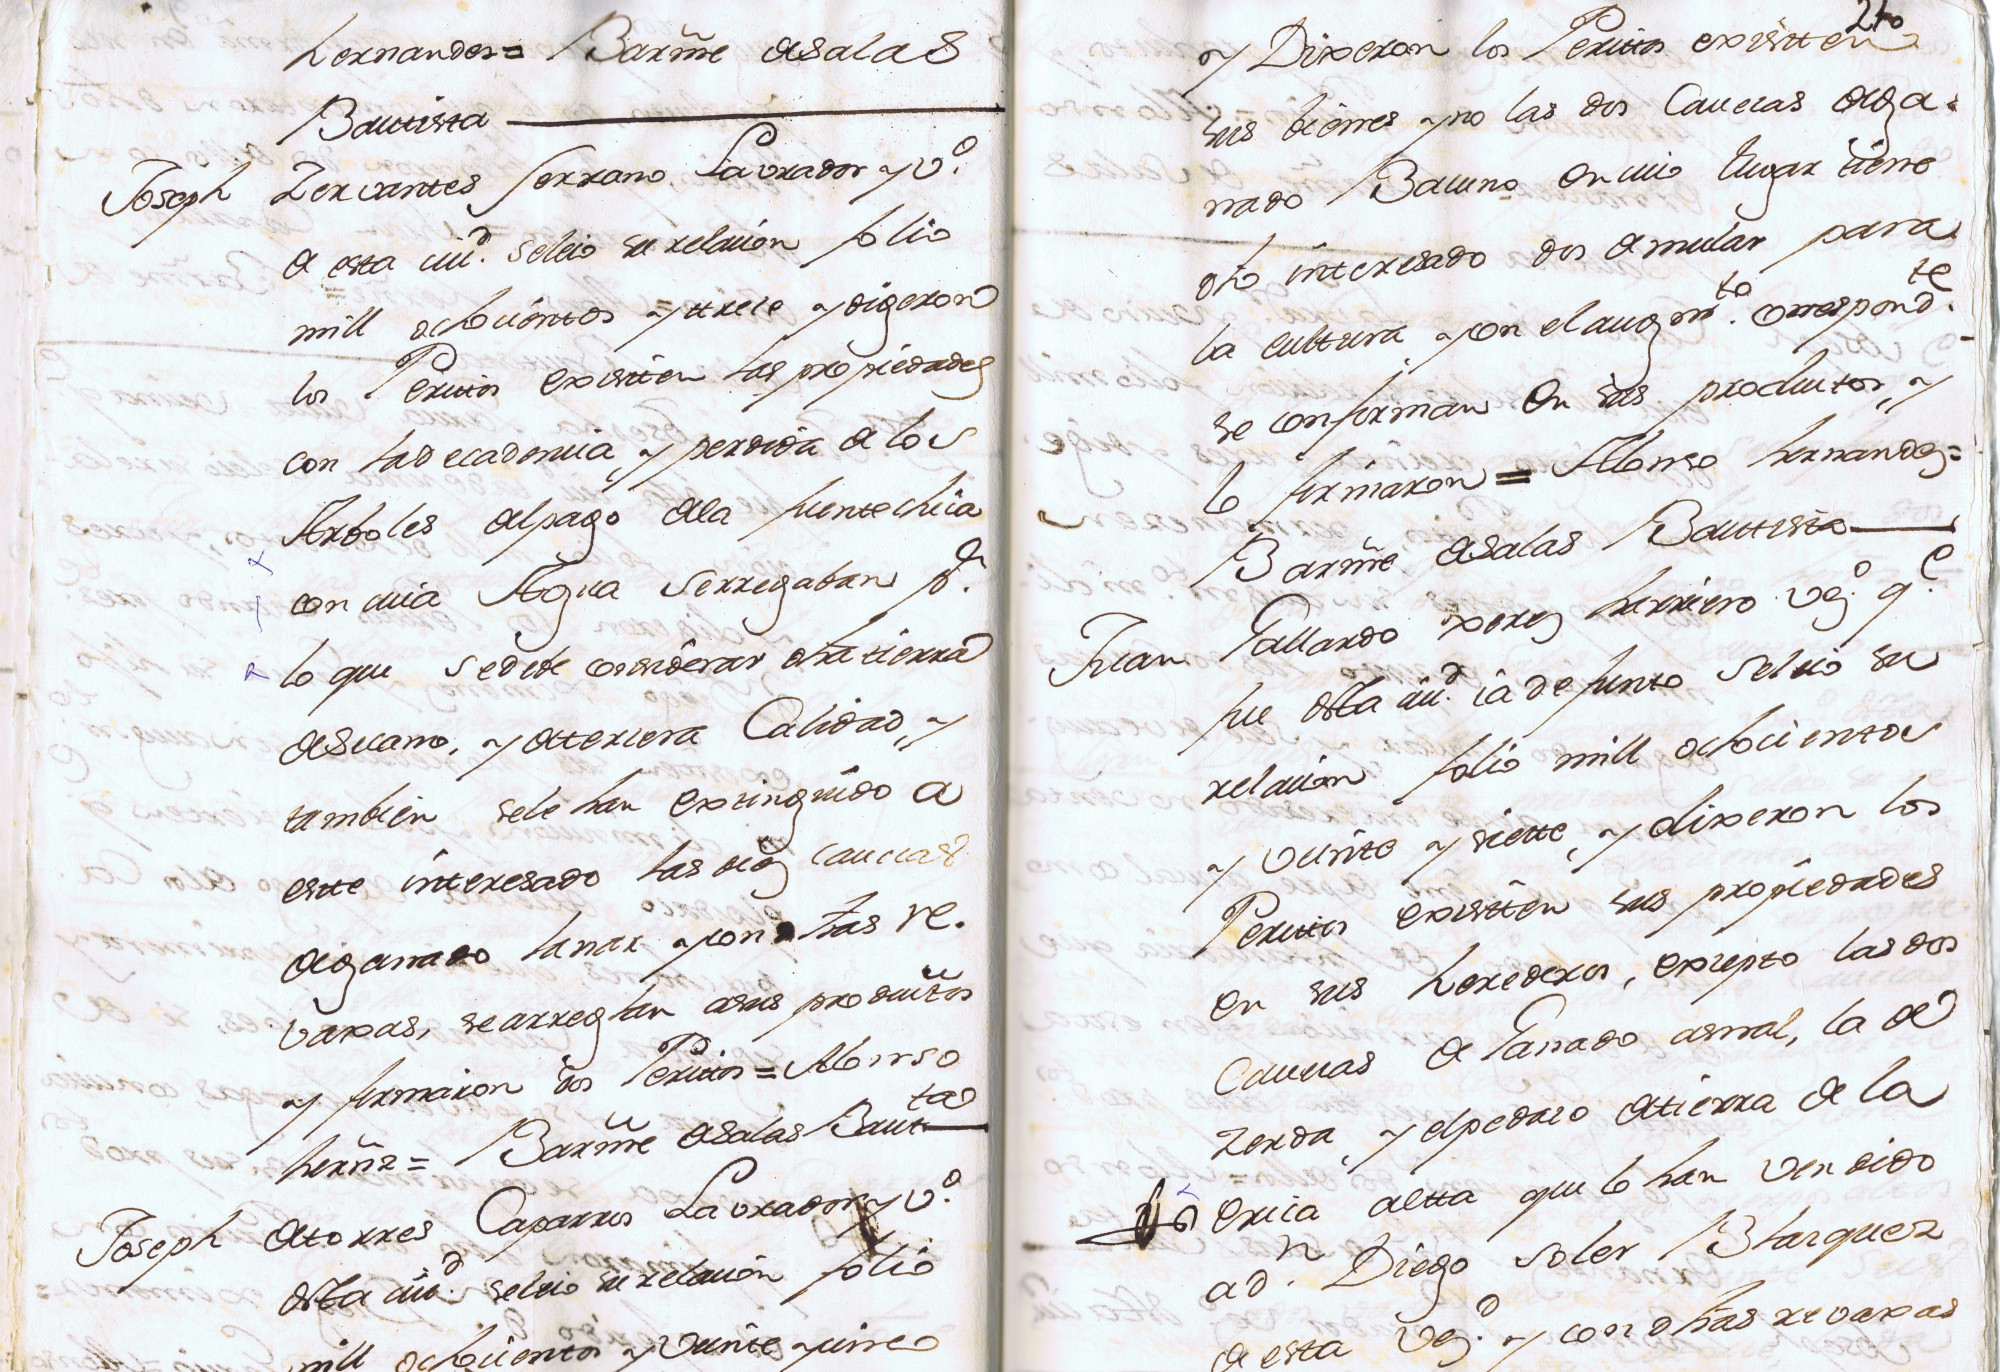 hernandes = Barm̃e de salas
Bautista
Joseph Zervantes serrano Lavrador y v.º
de esta ciu.d se leio su relacion folio
mill ochocientos y ttrece y digeron
los Peritos existten las propiedades
con la decadencia, y perdida de los
Arboles del pago de la fuente chica
con cuia Agua se rregaban p.r
lo que se debe considerar dha tierra
de secano, y de tercera Calidad, y
tambien se le han extinguido a
estte interesado las diez cavezas
de ganado lanar y con dhas re.
vaxas, se arreglan a sus productos
y firmaron dos Peritos = Alonso
herñz = Barm̃e de salas Bautta
Joseph de torres Caparros Lavrador y v.º
de sta ciu.d se leio su relacion folio
mill ochocientos y veinte y cinco
210
y Dixeron los Peritos existten
sus bienes y no las dos Cavezas de ga-
nado Bacuno en cuio lugar tiene
dho interesado dos de mular para
la cultura y con el augm.to correspond.te
se conforman en sus productos, y
lo firmaron = Alonso hernandez =
Barm̃e de salas Bautista
Juan Gallardo xerez herrero vez.º q.e
fue de sta ciu.d ia defunto se leio su
relacion folio mill ochocientos
y veinte y siette, y dixeron los
Peritos existten sus propiedades
en sus herederos, excepto las dos
Cavezas de Ganado asnal, la de
Zerda, y el pedazo de tierra de la
Orica altta que lo han vendido
a d.n Diego soler Blazquez
de esta vez.d y con dhas revaxas